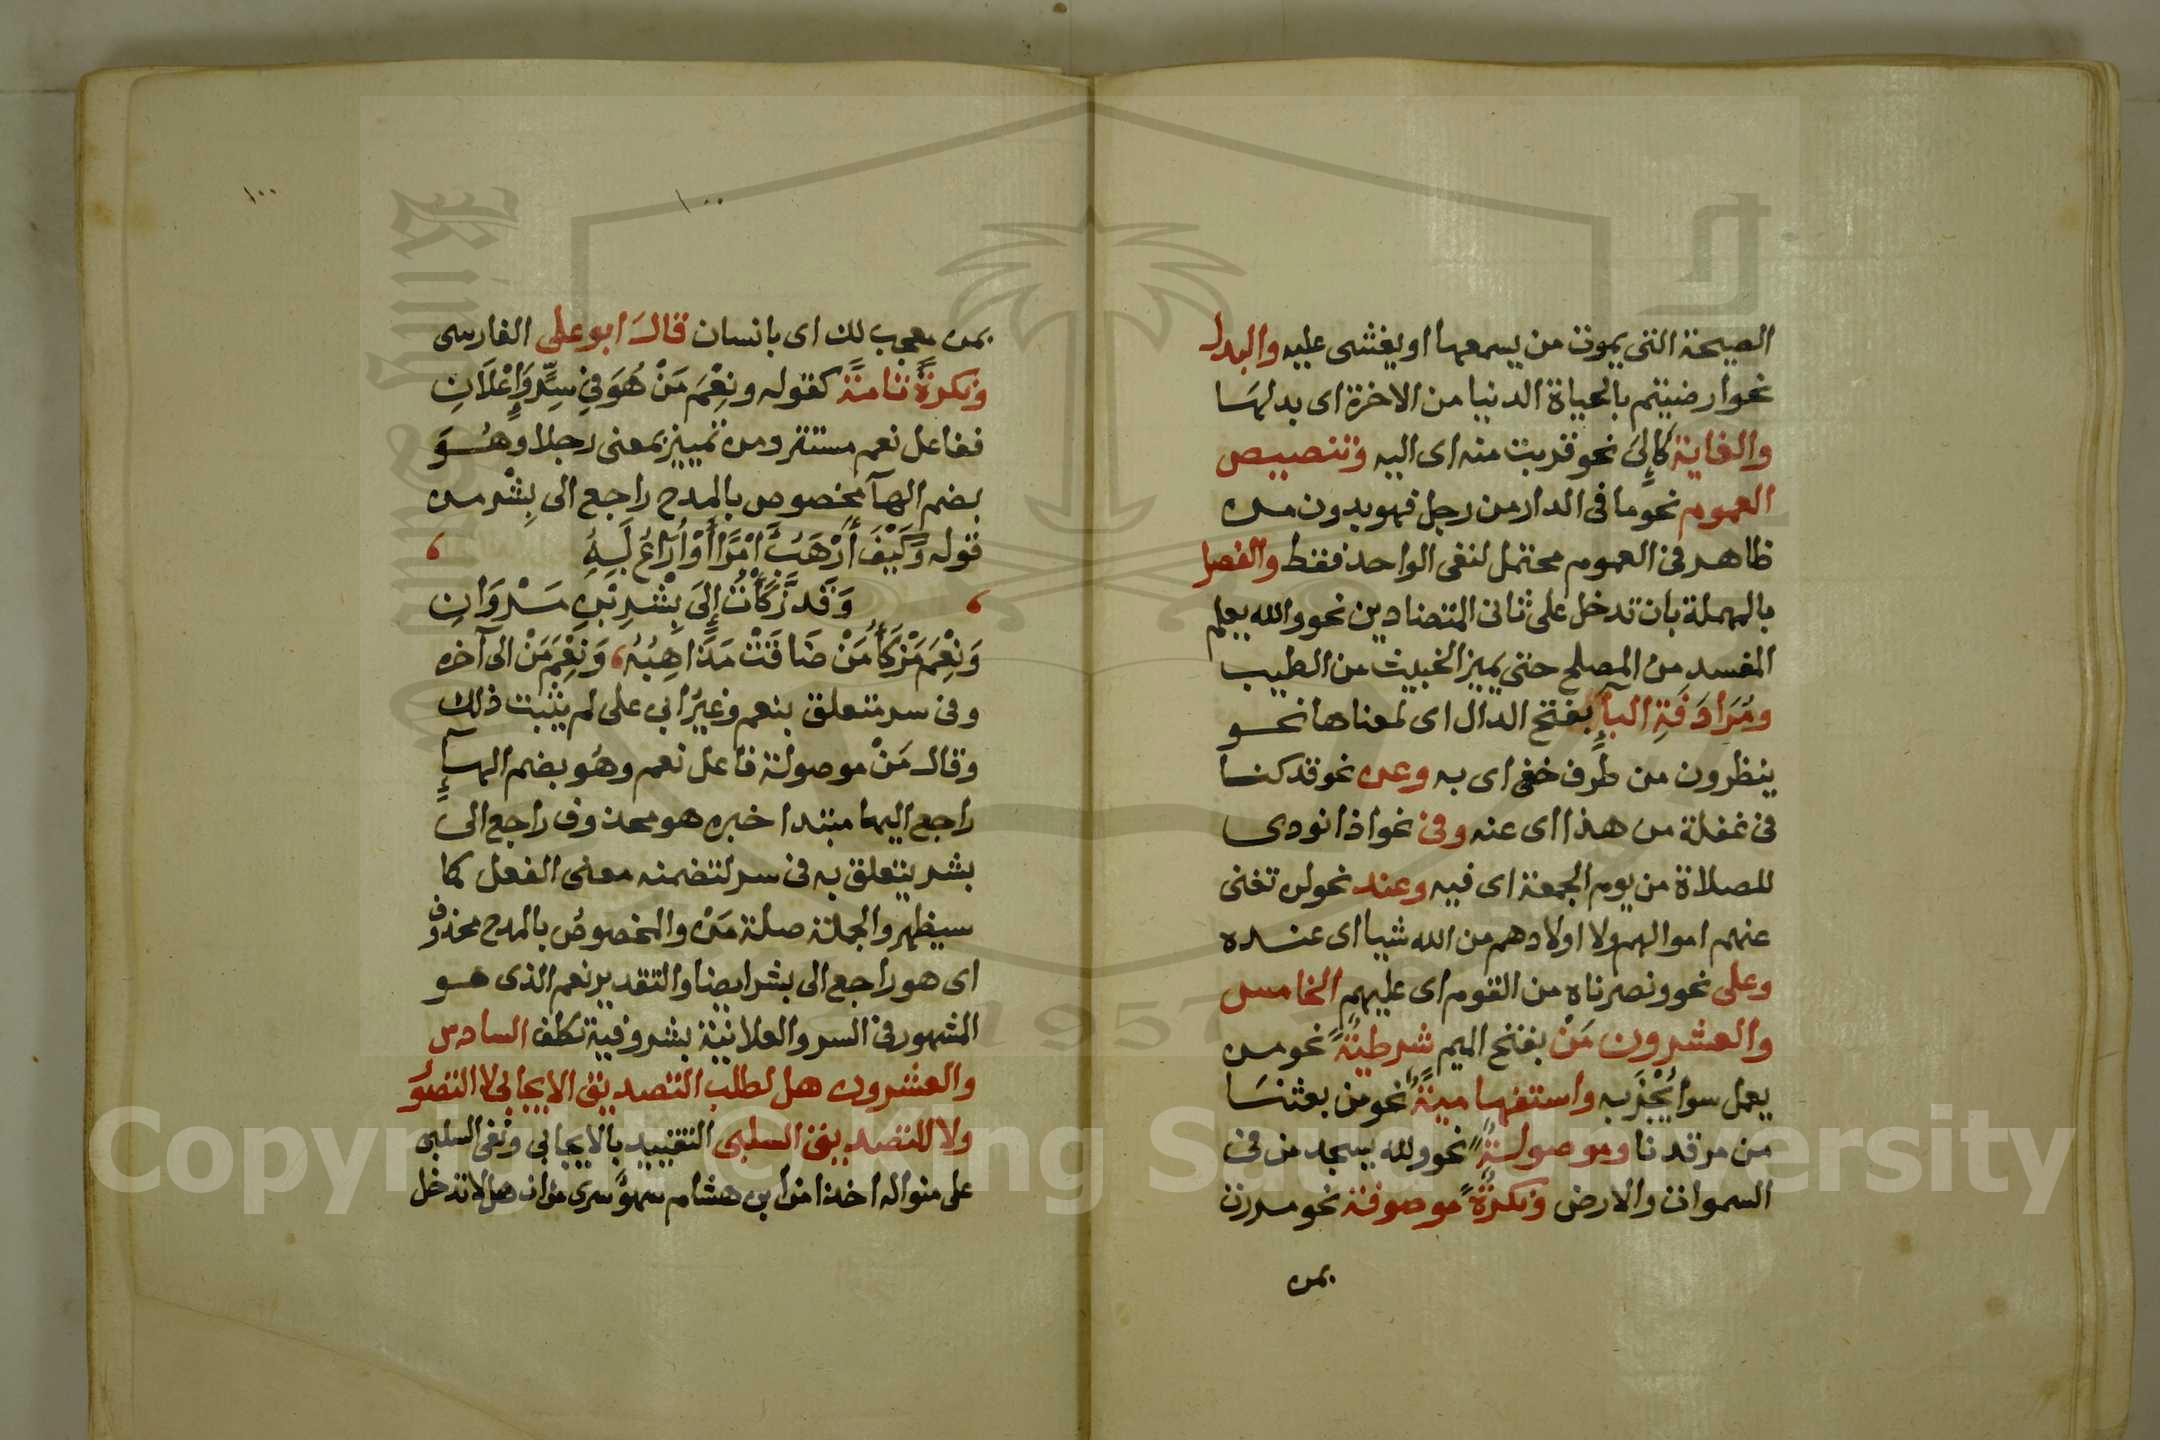 الصيحة التى يموت من يسمعها او يغشى عليه والبدل
نحو ارضيتم بالحياة الدنيا من الاخرة اى بدلها
والغاية كَإِلَى نحو قربت منه اى اليه وتنصيص
العموم نحو ما فى الدار من رجل فهو بدون من
ظاهر فى العموم محتمل لنفى الواحد فقط والفصل
بالمهملة بان تدخل على ثانى المتضادين نحو والله يعلم
المفسد من المصلح حتى يميز الخبيث من الطيب
ومُرَادَفَةِ البآءِ بفتح الدال اى لمعناها نحو
ينظرون من طرف خفى اى به وعن نحو قد كنا
فى غفلة من هذا اى عنه وفى نحو اذا نودى
للصلاة من يوم الجمعة اى فيه وعند نحو لن تغنى
عنهم اموالهم ولا اولادهم من الله شيا اى عنده
وعلى نحو ونصرناه من القوم اى عليهم الخامس
والعشرون مَنْ بفتح الميم شرطيةً نحو من
يعمل سوا يُجْزَ به واستفهاميةً نحو من بعثنا
من مرقدنا وموصولةً نحو ولله يسجد من فى
السموات والارض ونكرةً موصوفة نحو مررت
بمن
١٠٠
١٠٠
بمن معجب لك اى بانسان قال ابو على الفارسى
ونكرةً تامةً كقوله ونِعْمَ مَنْ هُوَ فِي سِرٍّ وَإِعْلَانِ
ففاعل نعم مستتر ومن تمييز بمعنى رجلا وهُوَ
بضم الهآ مخصوص بالمدح راجع الى بِشْر من
قوله وَكَيْفَ أَرْهَبُ أَمْرًا أَوْ أُرَاعُ لَهُ
وَقَد زَكَأْتُ إِلَى بِشْرِ بْنِ مَرْوَانِ
وَنِعْمَ مَزْكَأُ مَنْ ضَاقَتْ مَذَاهِبُهُ وَنِعْمَ مَنْ الى آخره
وفى سر متعلق بنعم وغيرُ ابى على لم يثبت ذلك
وقال مَنْ موصولة فاعل نعم وهُو بضم الهآءِ
راجع اليها مبتدا خبره هو محذوف راجع الى
بشر يتعلق به فى سر لتضمنه معنى الفعل كما
سيظهر والجملة صلة مَن والمخصوصُ بالمدح محذوف
اى هو راجع الى بشر ايضا والتقدير نعم الذى هو
المشهور فى السر والعلانية بشر وفيه تكلف السادس
والعشرون هل لطلب التصديق الايجابى لا التصور
ولا للتصديق السلبى التقييد بالايجابى ونفى السلبى
على منواله اخذا من ابن هشام سهوٌ سرى من ان هل لا تدخل